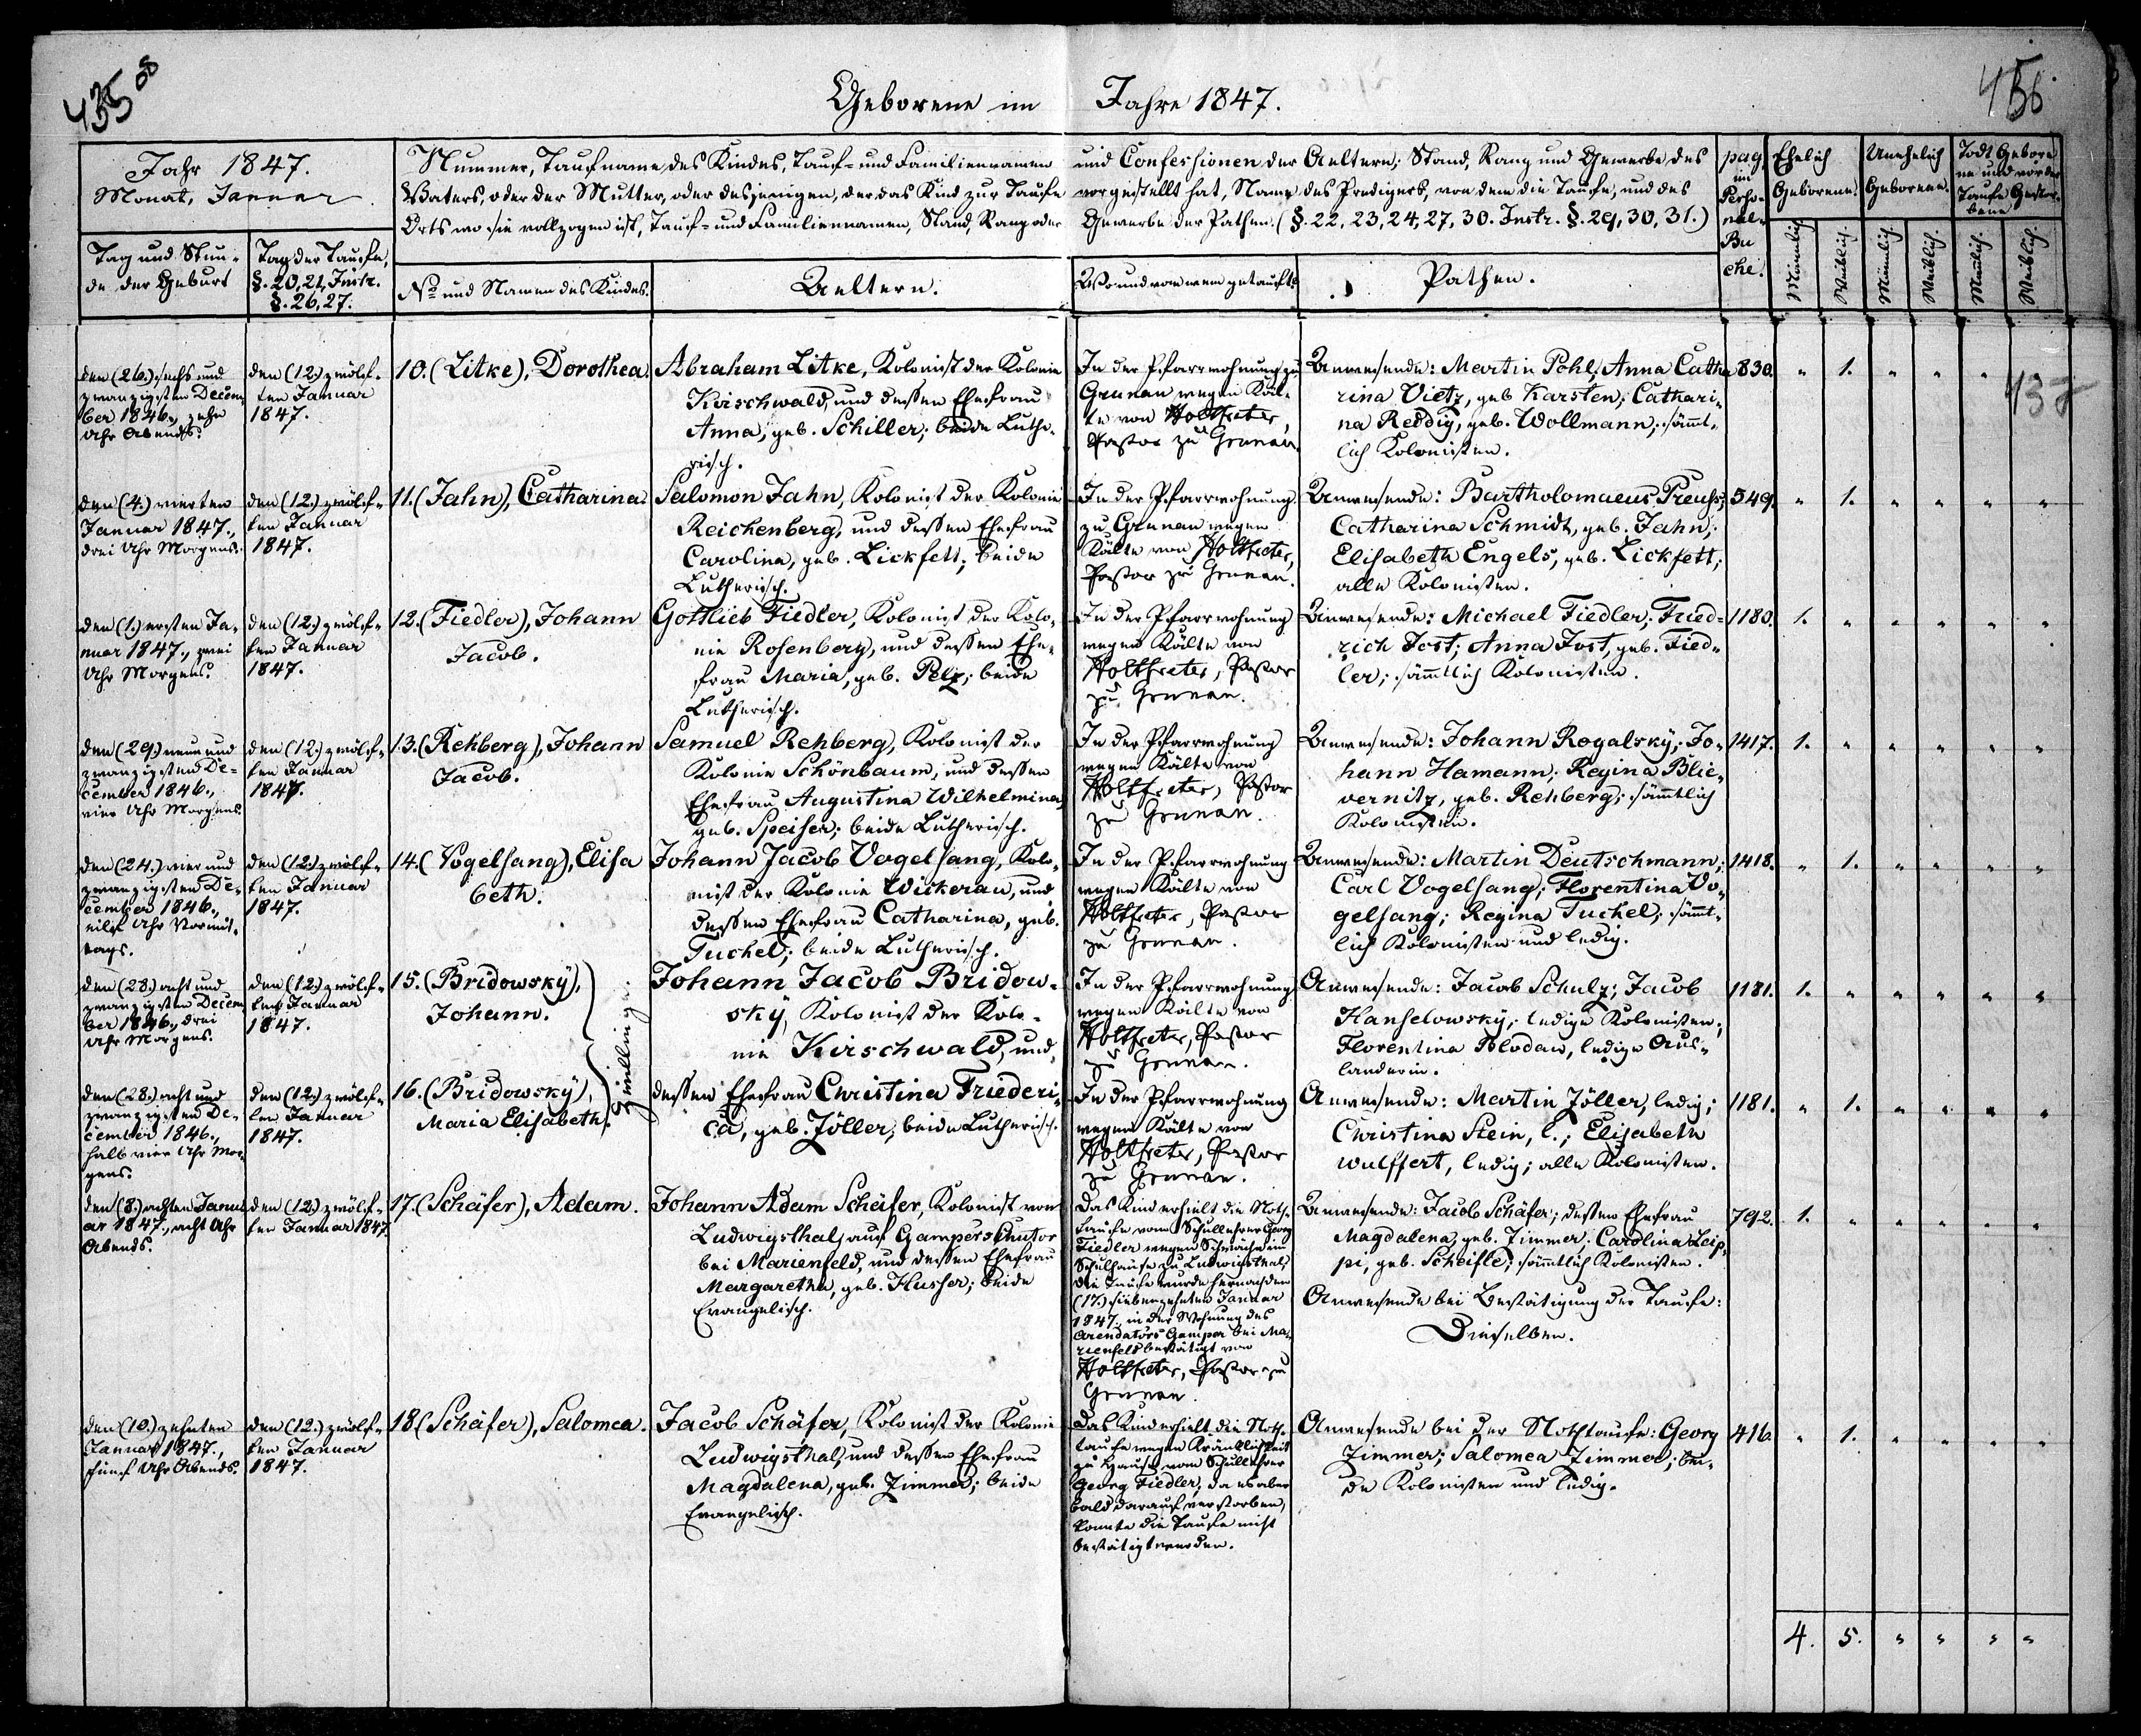 435
08
Geborene im Jahre 1847.
456
437
Jahr 1847.
Monat, Januar
Tag und Stun-
de der Geburt
Tag der Taufe,
§. 20, 21, Instr.
§. 26, 27.
Nummer, Taufname des Kindes, Tauf- und Familiennamen und Confessionen der Aeltern; Stand, Rang und Gewerbe des
Vaters, oder der Mutter, oder desjenigen, der das Kind zur Taufe vorgestellt hat, Name des Predigers, von dem die Taufe, und des
Orts wo sie vollzogen ist, Tauf- und Familiennamen, Stand, Rang oder Gewerbe der Pathen. (§. 22, 23, 24, 27, 30. Instr. §. 29, 30, 31.)
No und Namen des Kindes.
Aeltern.
Wo und von wem getauft?
Pathen.
pag
im
Perso-
nal-
Bu
che.
Ehelich
Geborene.
Unehelich
Geborene.
Todt Gebore
ne und vor der
Taufe Gestor-
bene
Männlich.
Weiblich.
Männlich.
Weiblich.
Männlich.
Weiblich.
den (26.) sechs und
zwanzigsten Decem
ber 1846., zehn
Uhr Abends.
den (12.) zwölf-
ten Januar
1847.
10. (Litke), Dorothea.
Abraham Litke, Kolonist der Kolonie
Kirschwald, und dessen Ehefrau
Anna, geb. Schiller; beide Luthe-
risch.
In der Pfarrwohnung zu
Grunau wegen Käl-
te von Holtfreter,
Pastor zu Grunau.
Anwesende: Martin Pohl, Anna Catha
rina Vietz, geb. Karsten; Cathari-
na Reddig, geb. Wollmann; sämmt-
lich Kolonisten.
830. " 1. " " " "
den (4.) vierten
Januar 1847.,
drei Uhr Morgens.
den (12.) zwölf-
ten Januar
1847.
11. (Jahn), Catharina.
Salomon Jahn, Kolonist der Kolonie
Reichenberg, und dessen Ehefrau
Carolina, geb. Lickfett; beide
Lutherisch.
In der Pfarrwohnung
zu Grunau wegen
Kälte von Holtfreter,
Pastor zu Grunau.
Anwesende: Bartholomaeus Preuss;
Catharina Schmidt, geb. Jahn;
Elisabeth Engels, geb. Lickfett;
alle Kolonisten.
549. " 1. " " " "
den (1.) ersten Ja-
nuar 1847., zwei
Uhr Morgens.
den (12.) zwölf-
ten Januar
1847.
12. (Fiedler), Johann
Jacob.
Gottlieb Fiedler, Kolonist der Kolo-
nie Rosenberg, und dessen Ehe-
frau Maria, geb. Pelz; beide
Lutherisch.
In der Pfarrwohnung
wegen Kälte von
Holtfreter, Pastor
zu Grunau.
Anwesende: Michael Fiedler; Fried-
rich Jost; Anna Jost, geb. Fied-
ler; sämmtlich Kolonisten.
1180. 1. " " " " "
den (29.) neun und
zwanzigsten De-
cember 1846.,
vier Uhr Morgens.
den (12.) zwölf-
ten Januar
1847.
13. (Rehberg), Johann
Jacob.
Samuel Rehberg, Kolonist der
Kolonie Schönbaum, und dessen
Ehefrau Augustina Wilhelmina,
geb. Speiser; beide Lutherisch.
In der Pfarrwohnung
wegen Kälte von
Holtfreter, Pastor
zu Grunau.
Anwesende: Johann Rogalsky; Jo-
hann Hamann; Regina Blie-
vernitz, geb. Rehberg; sämmtlich
Kolonisten.
1417. 1. " " " " "
den (24.) vier und
zwanzigsten De-
cember 1846.,
eilf Uhr Vormit-
tags.
den (12.) zwölf-
ten Januar
1847.
14. (Vogelsang), Elisa
beth.
Johann Jacob Vogelsang, Kolo-
nist der Kolonie Wickerau, und
dessen Ehefrau Catharina, geb.
Tuchel; beide Lutherisch.
In der Pfarrwohnung
wegen Kälte von
Holtfreter, Pastor
zu Grunau.
Anwesende: Martin Deutschmann;
Carl Vogelsang; Florentina Vo-
gelsang; Regina Tuchel; sämmt-
lich Kolonisten und ledig.
1418. " 1. " " " "
den (28.) acht und
zwanzigsten Decem
ber 1846., drei
Uhr Morgens.
den (12.) zwölf-
ten Januar
1847.
15. (Bridowský),
Johann.
Zwillinge.
Johann Jacob Bridow-
ský, Kolonist der Kolo-
nie Kirschwald, und
In der Pfarrwohnung
wegen Kälte von
Holtfreter, Pastor
zu Grunau.
Anwesende: Jacob Schulz; Jacob
Hanselowsky, ledige Kolonisten;
Florentina Blodau, ledige Aus-
länderin.
1181. 1. " " " " "
den (28.) acht und
zwanzigsten De-
cember 1846.,
halb vier Uhr Mor
gens.
den (12.) zwölf-
ten Januar
1847.
16. (Bridowský),
Maria Elisabeth.
dessen Ehefrau Christina Friederi-
ca, geb. Zöller; beide Lutherisch.
In der Pfarrwohnung
wegen Kälte von
Holtfreter, Pastor
zu Grunau.
Anwesende: Martin Zöller, ledig;
Christina Stein, l.; Elisabeth
Wulffert, ledig; alle Kolonisten.
1181. " 1. " " " "
den (8.) achten Janu
ar 1847., acht Uhr
Abends.
den (12.) zwölf-
ten Januar 1847.
17. (Schäfer), Adam.
Johann Adam Schäfer, Kolonist von
Ludwigsthal, auf Gampers Chutor
bei Marienfeld, und dessen Ehefrau
Margaretha, geb. Husser; beide
Evangelisch.
Das Kind erhielt die Noth-
taufe vom Schullehrer Georg
Fiedler wegen Schwäche im
Schulhause zu Ludwigsthal,
die Taufe wurde hernach den
(17.) siebenzehnten Januar
1847., in der Wohnung des
Arendators Gamper bei Ma-
rienfeld bestätigt von
Holtfreter, Pastor zu
Grunau.
Anwesende: Jacob Schäfer; dessen Ehefrau
Magdalena, geb. Zimmer. Carolina Leip-
pi, geb. Scheifle; sämmtlich Kolonisten.
Anwesende bei Bestätigung der Taufe:
Dieselben.
792. 1. " " " " "
den (10.) zehnten
Januar 1847.,
fünf Uhr Abends.
den (12.) zwölf-
ten Januar
1847.
18. (Schäfer), Salomea.
Jacob Schäfer, Kolonist der Kolonie
Ludwigsthal, und dessen Ehefrau
Magdalena, geb. Zimmer; beide
Evangelisch.
Das Kind erhielt die Noth-
taufe wegen Kränklichkeit
zu Hause vom Schullehrer
Georg Fiedler, da es aber
bald darauf verstorben,
konnte die Taufe nicht
bestätigt werden.
Anwesende bei der Nothtaufe: Georg
Zimmer; Salomea Zimmer; bei-
de Kolonisten und ledig.
416. " 1. " " " "
4. 5. " " " "